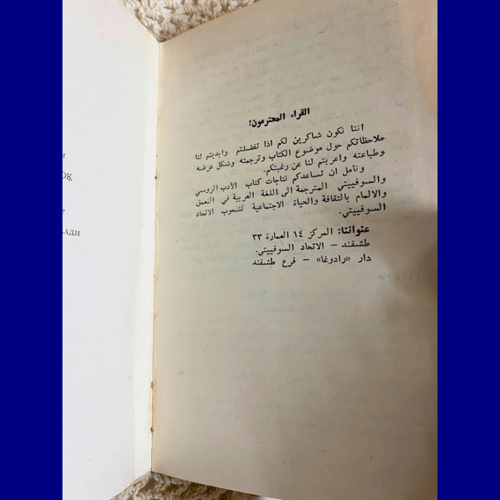 القراء المحترمون!
اننا نكون شاكرين لكم اذا تفضلتم وابديتم لنا
ملاحظاتكم حول موضوع الكتاب وترجمته وشكل عرضه
وطباعته واعربتم لنا عن رغبتكم.
ونامل ان تساعدكم نتاجات كتاب الادب الروسي
والسوفييتي المترجمة الى اللغة العربية في التعمق
والالمام بالثقافة والحياة الاجتماعية لشعوب الاتحاد
السوفييتي.
عنواننا: المركز ١٤ العمارة ٣٣
طشقند – الاتحاد السوفييتي.
دار «رادوغا» – فرع طشقند